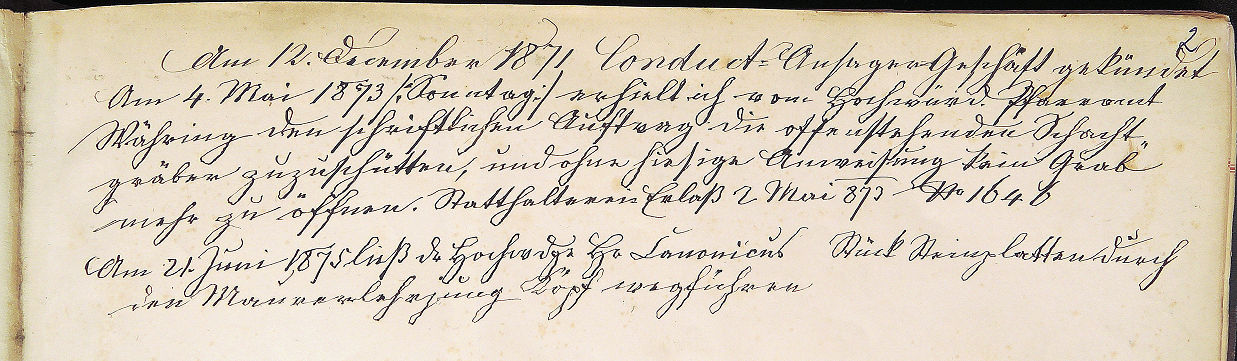 2
Am 12. December 1871 Conduct=Ansager-Geschäft gekündet
Am 4. Mai 1873 /:Sonntag:/ erhielt ich vom Hochwürd. Pfarramt
Währing den schriftlichen Auftrag die offenstehenden Schacht
gräber zuzuschütten, und ohne hiesige Anweisung kein Grab
mehr zu öffnen. Statthalterei Erlaß 2 Mai 873 No 1646
Am 21. Juni 1875 ließ dr Hochwdge Hr Canonicus Stück Steinplatten durch
den Maurerlehrjung Köpf wegführen